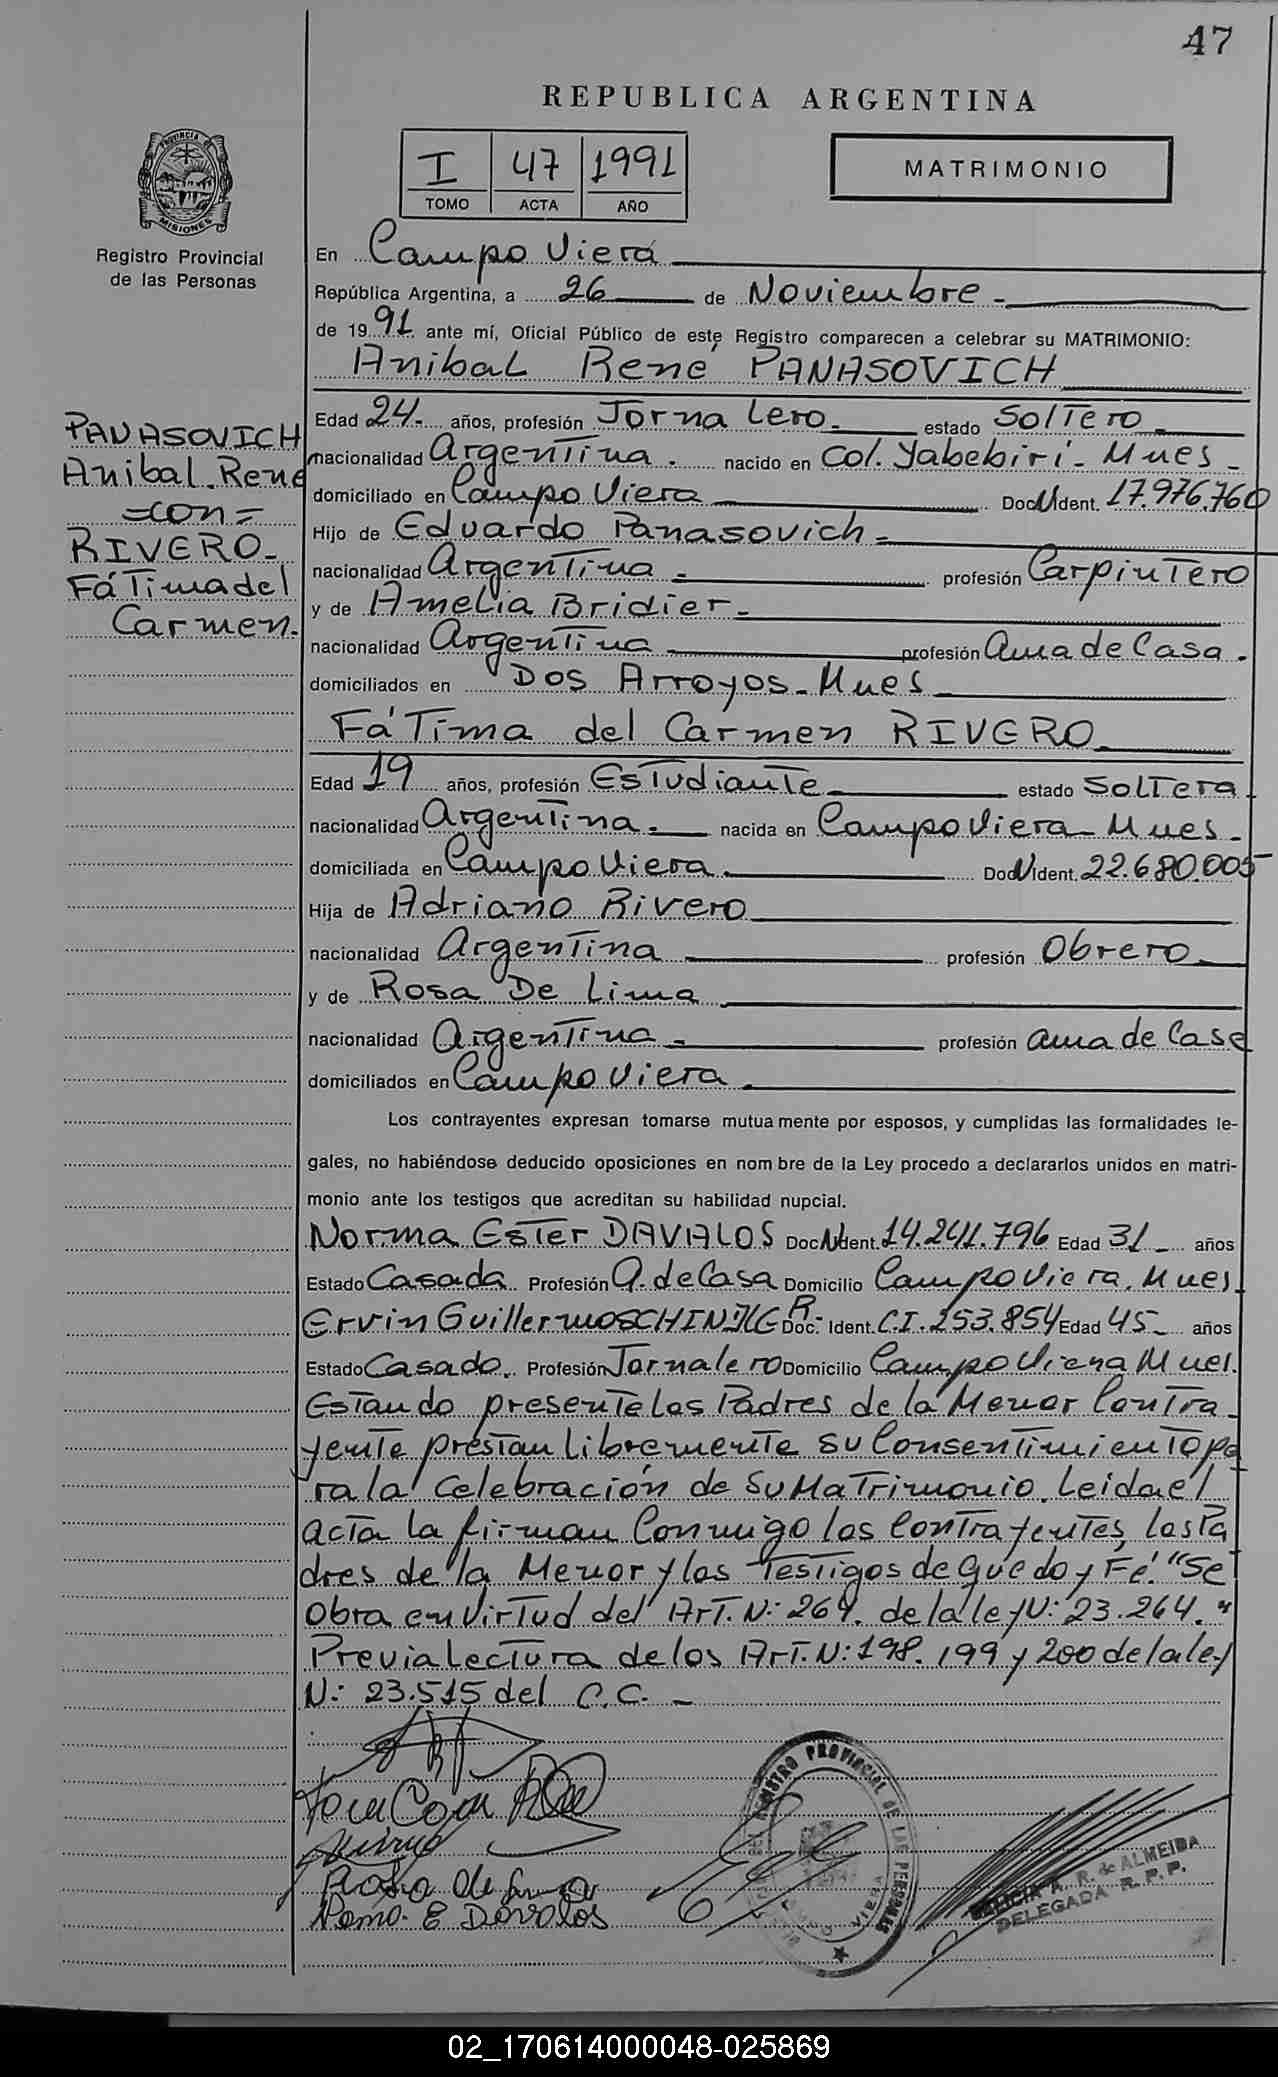 47
REPUBLICA ARGENTINA
I 47 1991
TOMO ACTA AÑO
MATRIMONIO
PROVINCIA DE
MISIONES
Registro Provincial
de las Personas
PANASOVICH
Anibal.Rene
=con=
RIVERO-
FáTima del
Carmen.
En Campo Viera
República Argentina, a 26 de Noviembre-
de 1991 ante mí, Oficial Público de este Registro comparecen a celebrar su MATRIMONIO:
Anibal René PANASOVICH
Edad 24- años, profesión Jornalero- estado SolTero-
nacionalidad ArgenTina. nacido en Col. Yabebirí- Mnes-
domiciliado en Campo Viera Doc N Ident. 17.976.760
Hijo de Eduardo Panasovich-
nacionalidad ArgenTina- profesión CarpinTero
y de Amelia Bridier-
nacionalidad ArgenTina profesión Ama de Casa.
domiciliados en Dos Arroyos-Mnes
FáTima del Carmen RIVERO
Edad 19 años, profesión EsTudianTe estado SolTera
nacionalidad ArgenTina- nacida en Campo Viera-Mnes-
domiciliada en Campo Viera. Doc N Ident. 22.680.005
Hija de Adriano Rivero
nacionalidad ArgenTina profesión Obrero
y de Rosa De Lima
nacionalidad ArgenTina- profesión ama de Casa
domiciliados en Campo Viera.
Los contrayentes expresan tomarse mutuamente por esposos, y cumplidas las formalidades le-
gales, no habiéndose deducido oposiciones en nombre de la Ley procedo a declararlos unidos en matri-
monio ante los testigos que acreditan su habilidad nupcial.
Norma EsTer DAVALOS Doc N Ident. 14.241.796 Edad 31- años
Estado Casada Profesión A.de Casa Domicilio Campo Viera. Mnes.
Ervin Guillermo SCHINDLER Doc. Ident. C.I.253.854 Edad 45- años
Estado Casado. Profesión Jornalero Domicilio Campo Viera Mnes.
EsTando presente los Padres de la Menor ConTra-
yenTe presTan LibremenTe su ConsenTimienTo pa
ra la Celebración de Su MaTrimonio. Leida el
acTa la firman Conmigo los ConTrayenTes, los Pa
dres de la Menor y los TesTigos de que doy Fé. "Se
Obra en VirTud del ArT. N: 264. de la ley N: 23.264."
Previa LecTura de los ArT. N: 198. 199 y 200 de la ley
N: 23.515 del C.C.-
Rosa de Lima
Norma E Davalos
REGISTRO PROVINCIAL DE LAS PERSONAS
CAMPO VIERA
ALICIA A. R. de ALMEIDA
DELEGADA R. P. P.
02_170614000048-025869